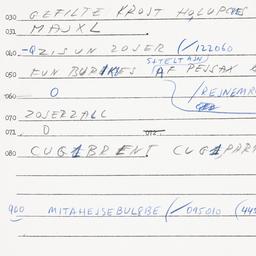 030 GEFILTE KROST HOLUPCES
031 MAJXL
040 -Q Z,S UN ZOJER (/122060
SHTELT AJN)
050 FUN BURIKES (AF PEJSAX
060 O /REJNEMR
070 ZOJERZALC
072 D 072
080 CUGIBRENT CUGEPAR
900 MITAHEJSEBULBE (/095010 (445